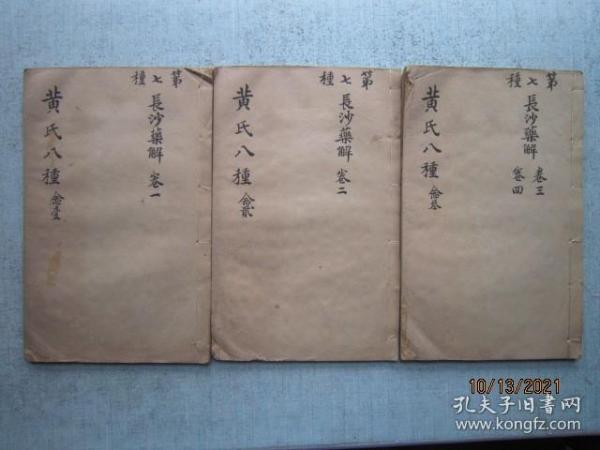 第七種
長沙藥解 卷一
黄氏八種 念壹
第七種
長沙藥解 卷二
黄氏八種 念貳
第七種
長沙藥解 卷三 卷四
黄氏八種
10/13/2021
孔夫子旧書网
www.kongfz.com